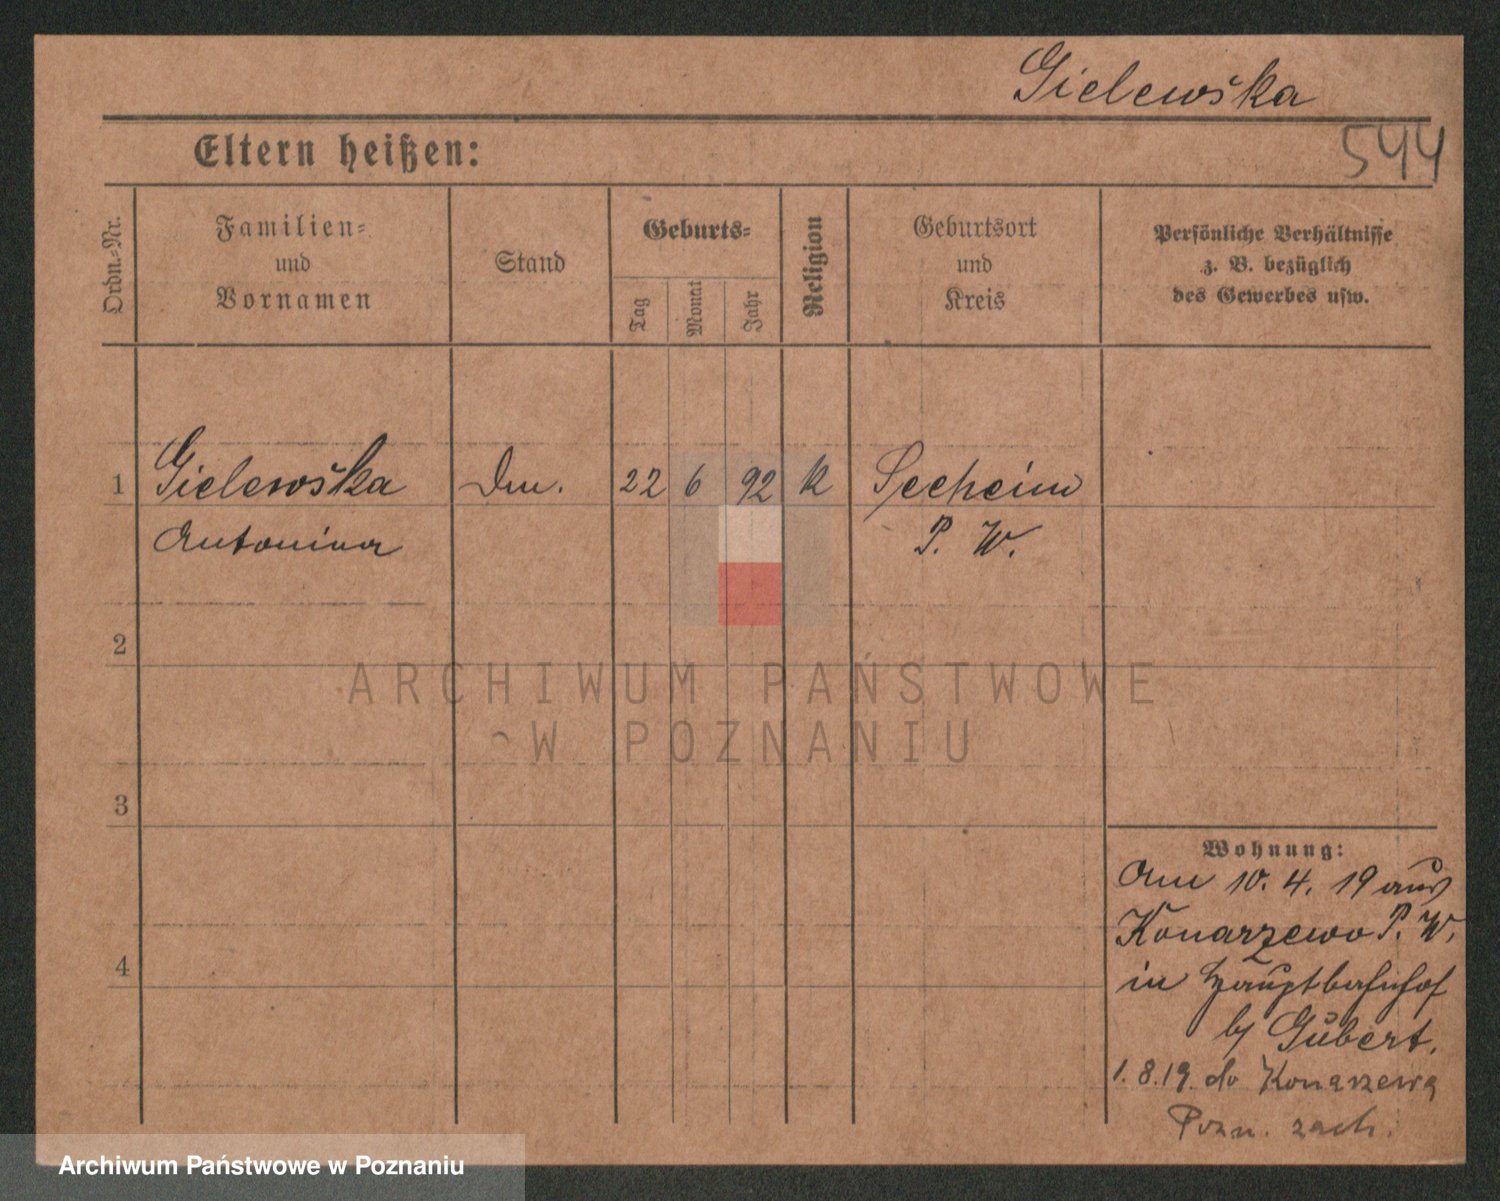 Gielewska
544
Eltern heißen:
Ordn.-Nr.
Familien-
und
Vornamen
Stand
Geburts-
Tag
Monat
Jahr
Religion
Geburtsort
und
Kreis
Persönliche Verhältnisse
z. B. bezüglich
des Gewerbes usw.
1 Gielewska 22 6 92 k Seeheim
Antonina P. W.
2
3
4
ARCHIWUM PAŃSTWOWE
W POZNANIU
Wohnung:
Am 10. 4. 19 aus
Konarzewo P. W.
in Hauptbahnhof
by Gubert.
1.8.19. do Konarzewa
Pozn. zach.
Archiwum Państwowe w Poznaniu